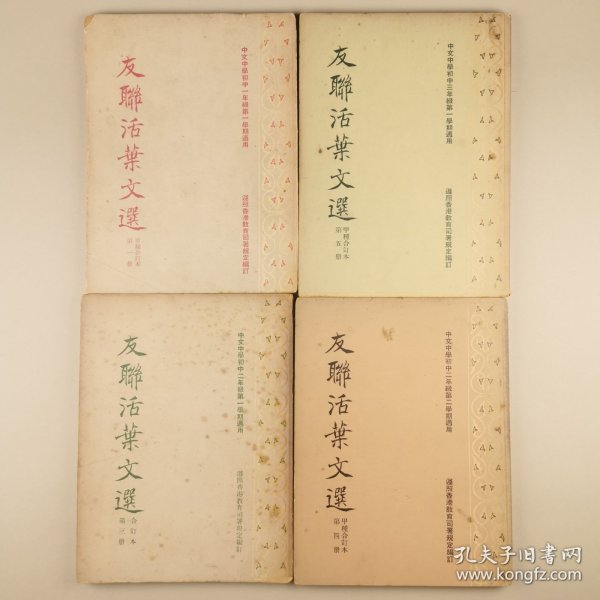 友聯活葉文選
甲種合訂本
第一册
中文中學初中一年級第一學期適用
遵照香港教育司署規定編訂
友聯活葉文選
甲種合訂本
第五册
中文中學初中三年級第一學期適用
遵照香港教育司署規定編訂
友聯活葉文選
合訂本
第三册
中文中學初中二年級第一學期適用
遵照香港教育司署規定編訂
友聯活葉文選
甲種合訂本
第四册
中文中學初中二年級第二學期適用
遵照香港教育司署規定編訂
孔夫子旧书网
www.kongfz.com